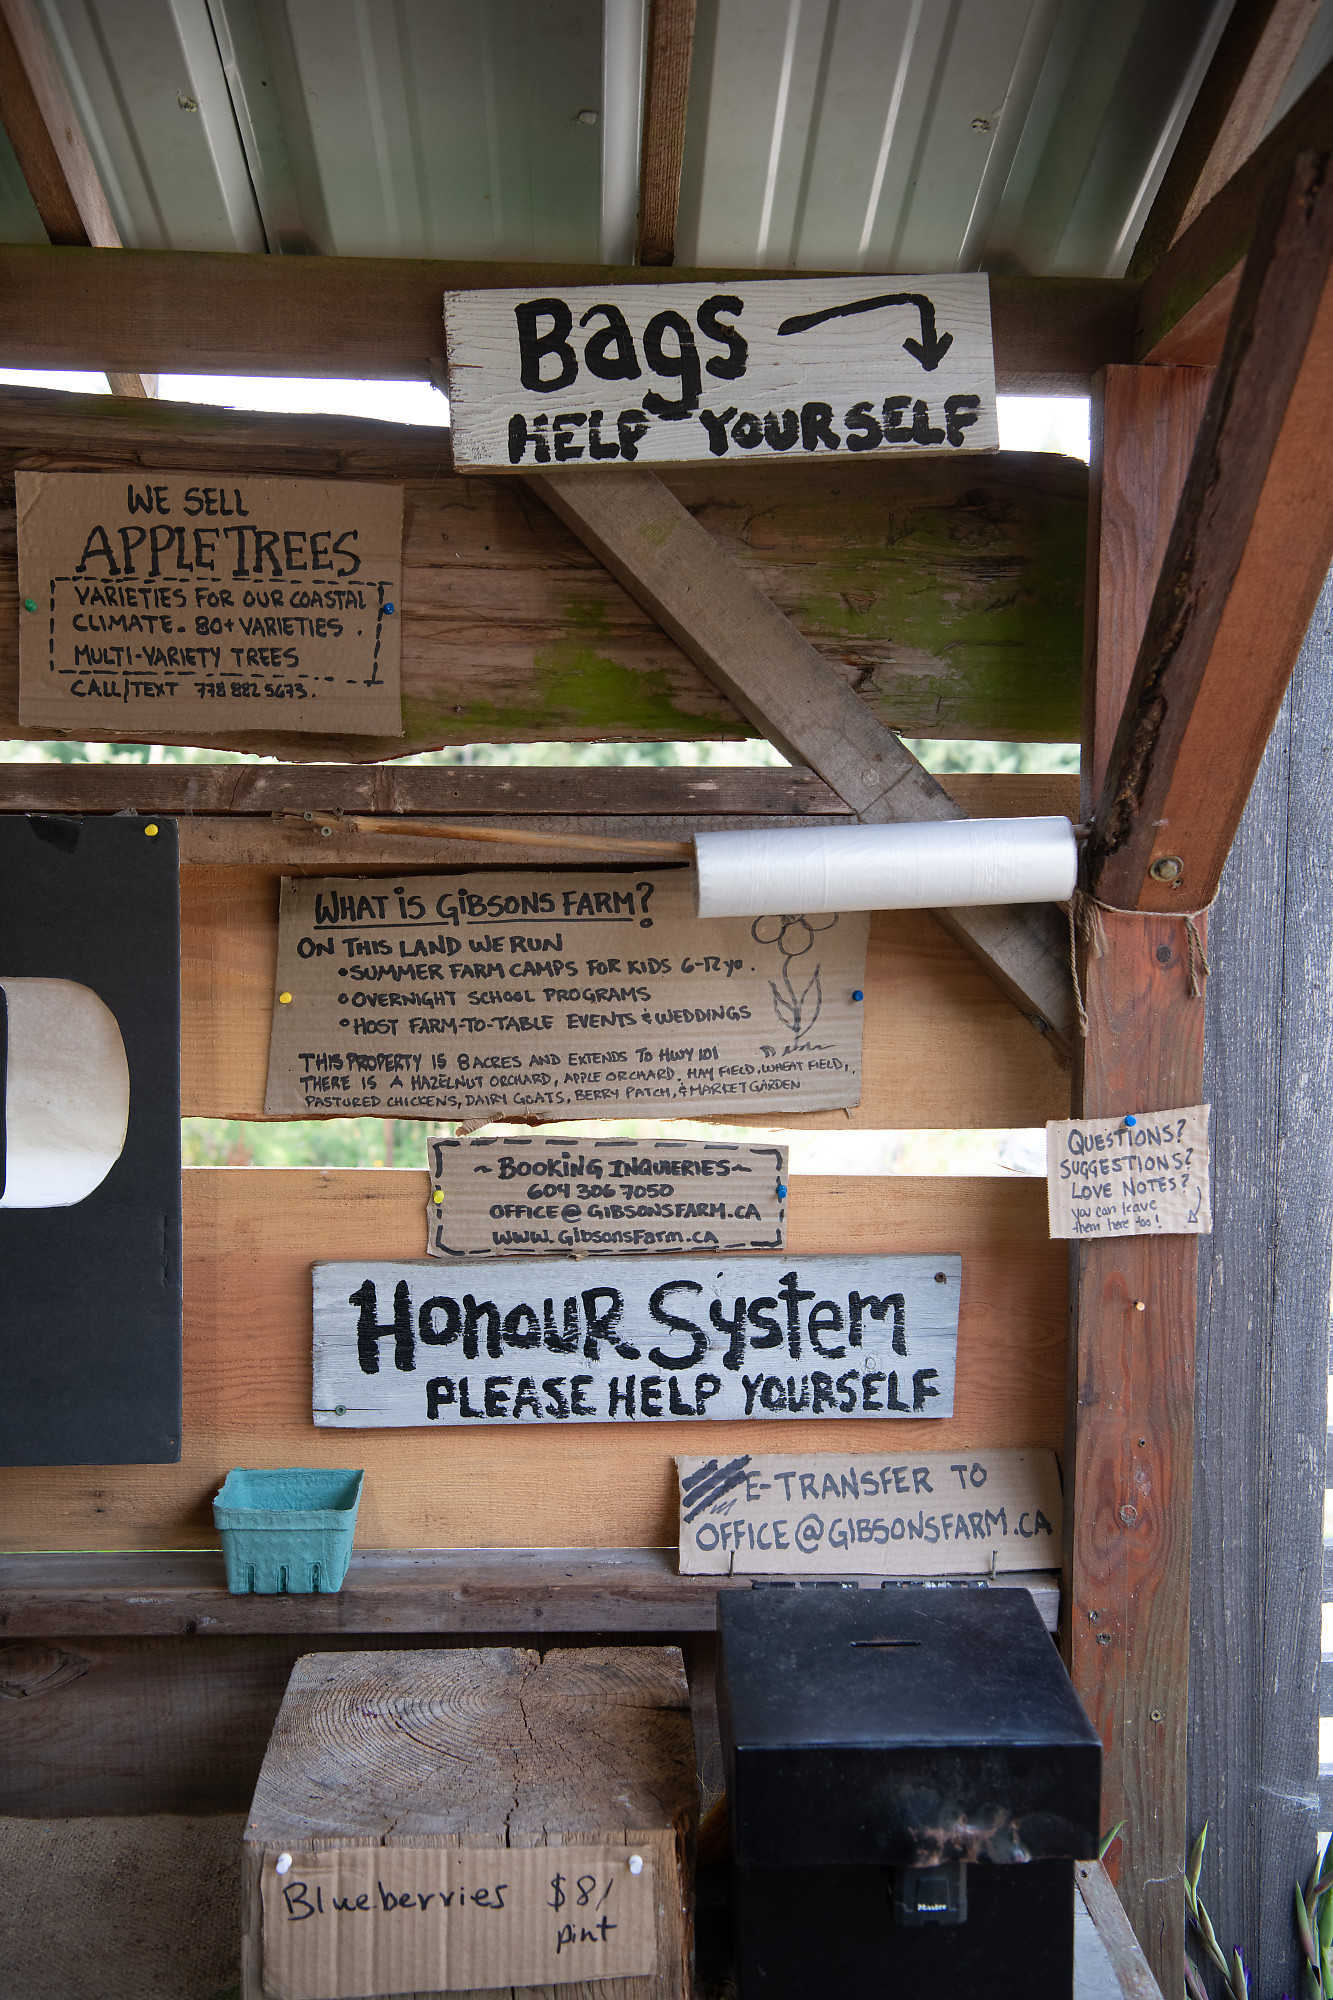 Bags
HELP YOURSELF
WE SELL
APPLE TREES
VARIETIES FOR OUR COASTAL
CLIMATE. 80+ VARIETIES.
MULTI-VARIETY TREES
CALL/TEXT 778 882 5673.
WHAT IS GIBSONS FARM?
ON THIS LAND WE RUN
•SUMMER FARM CAMPS FOR KIDS 6-12 yo.
•OVERNIGHT SCHOOL PROGRAMS
•HOST FARM-TO-TABLE EVENTS & WEDDINGS
THIS PROPERTY IS 8 ACRES AND EXTENDS TO HWY 101
THERE IS A HAZELNUT ORCHARD, APPLE ORCHARD, HAY FIELD, WHEAT FIELD,
PASTURED CHICKENS, DAIRY GOATS, BERRY PATCH, & MARKET GARDEN
QUESTIONS?
SUGGESTIONS?
LOVE NOTES?
you can leave
them here too!
~BOOKING INQUIERIES~
604 306 7050
OFFICE@GIBSONSFARM.CA
WWW.GibsonsFarm.CA
HonouR System
PLEASE HELP YOURSELF
E-TRANSFER TO
OFFICE@GIBSONSFARM.CA
Blueberries $8/
pint
Master